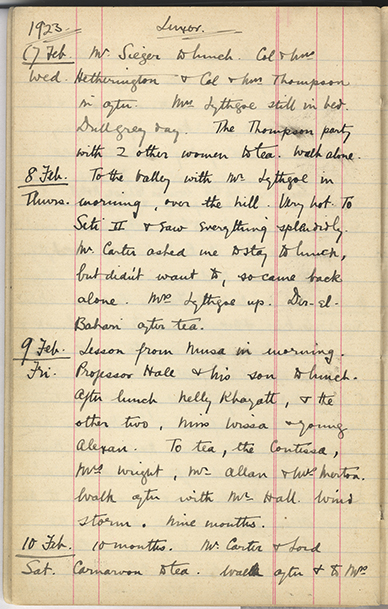 1923. Luxor.
7 Feb. Mr. Sieger to lunch. Col & Mrs
Wed. Hetherington & Col & Mrs Thompson
in after. Mrs Lythgoe still in bed.
Dull grey day. The Thompson party
with 2 other women to tea. Walk alone.
8 Feb. To the Valley with Mr. Lythgoe in
Thurs. morning, over the hill. Very hot. To
Seti II & saw everything splendidly.
Mr. Carter asked me to stay to lunch,
but didn't want to, so came back
alone. Mrs Lythgoe up. Der-el-
Bahari after tea.
9 Feb. Lesson from Musa in morning.
Fri. Professor Hall & his son to lunch.
After lunch Nelly Khayatt, & the
other two, Miss Wissa & young
Alexan. To tea, the Contessa,
Mrs Wright, Mr. Allan & Mrs Merton.
Walk after with Mr. Hall. Wind
storm. Nine months.
10 Feb. 10 months. Mr. Carter & Lord
Sat. Carnarvon to tea. Walk after & to Mrs